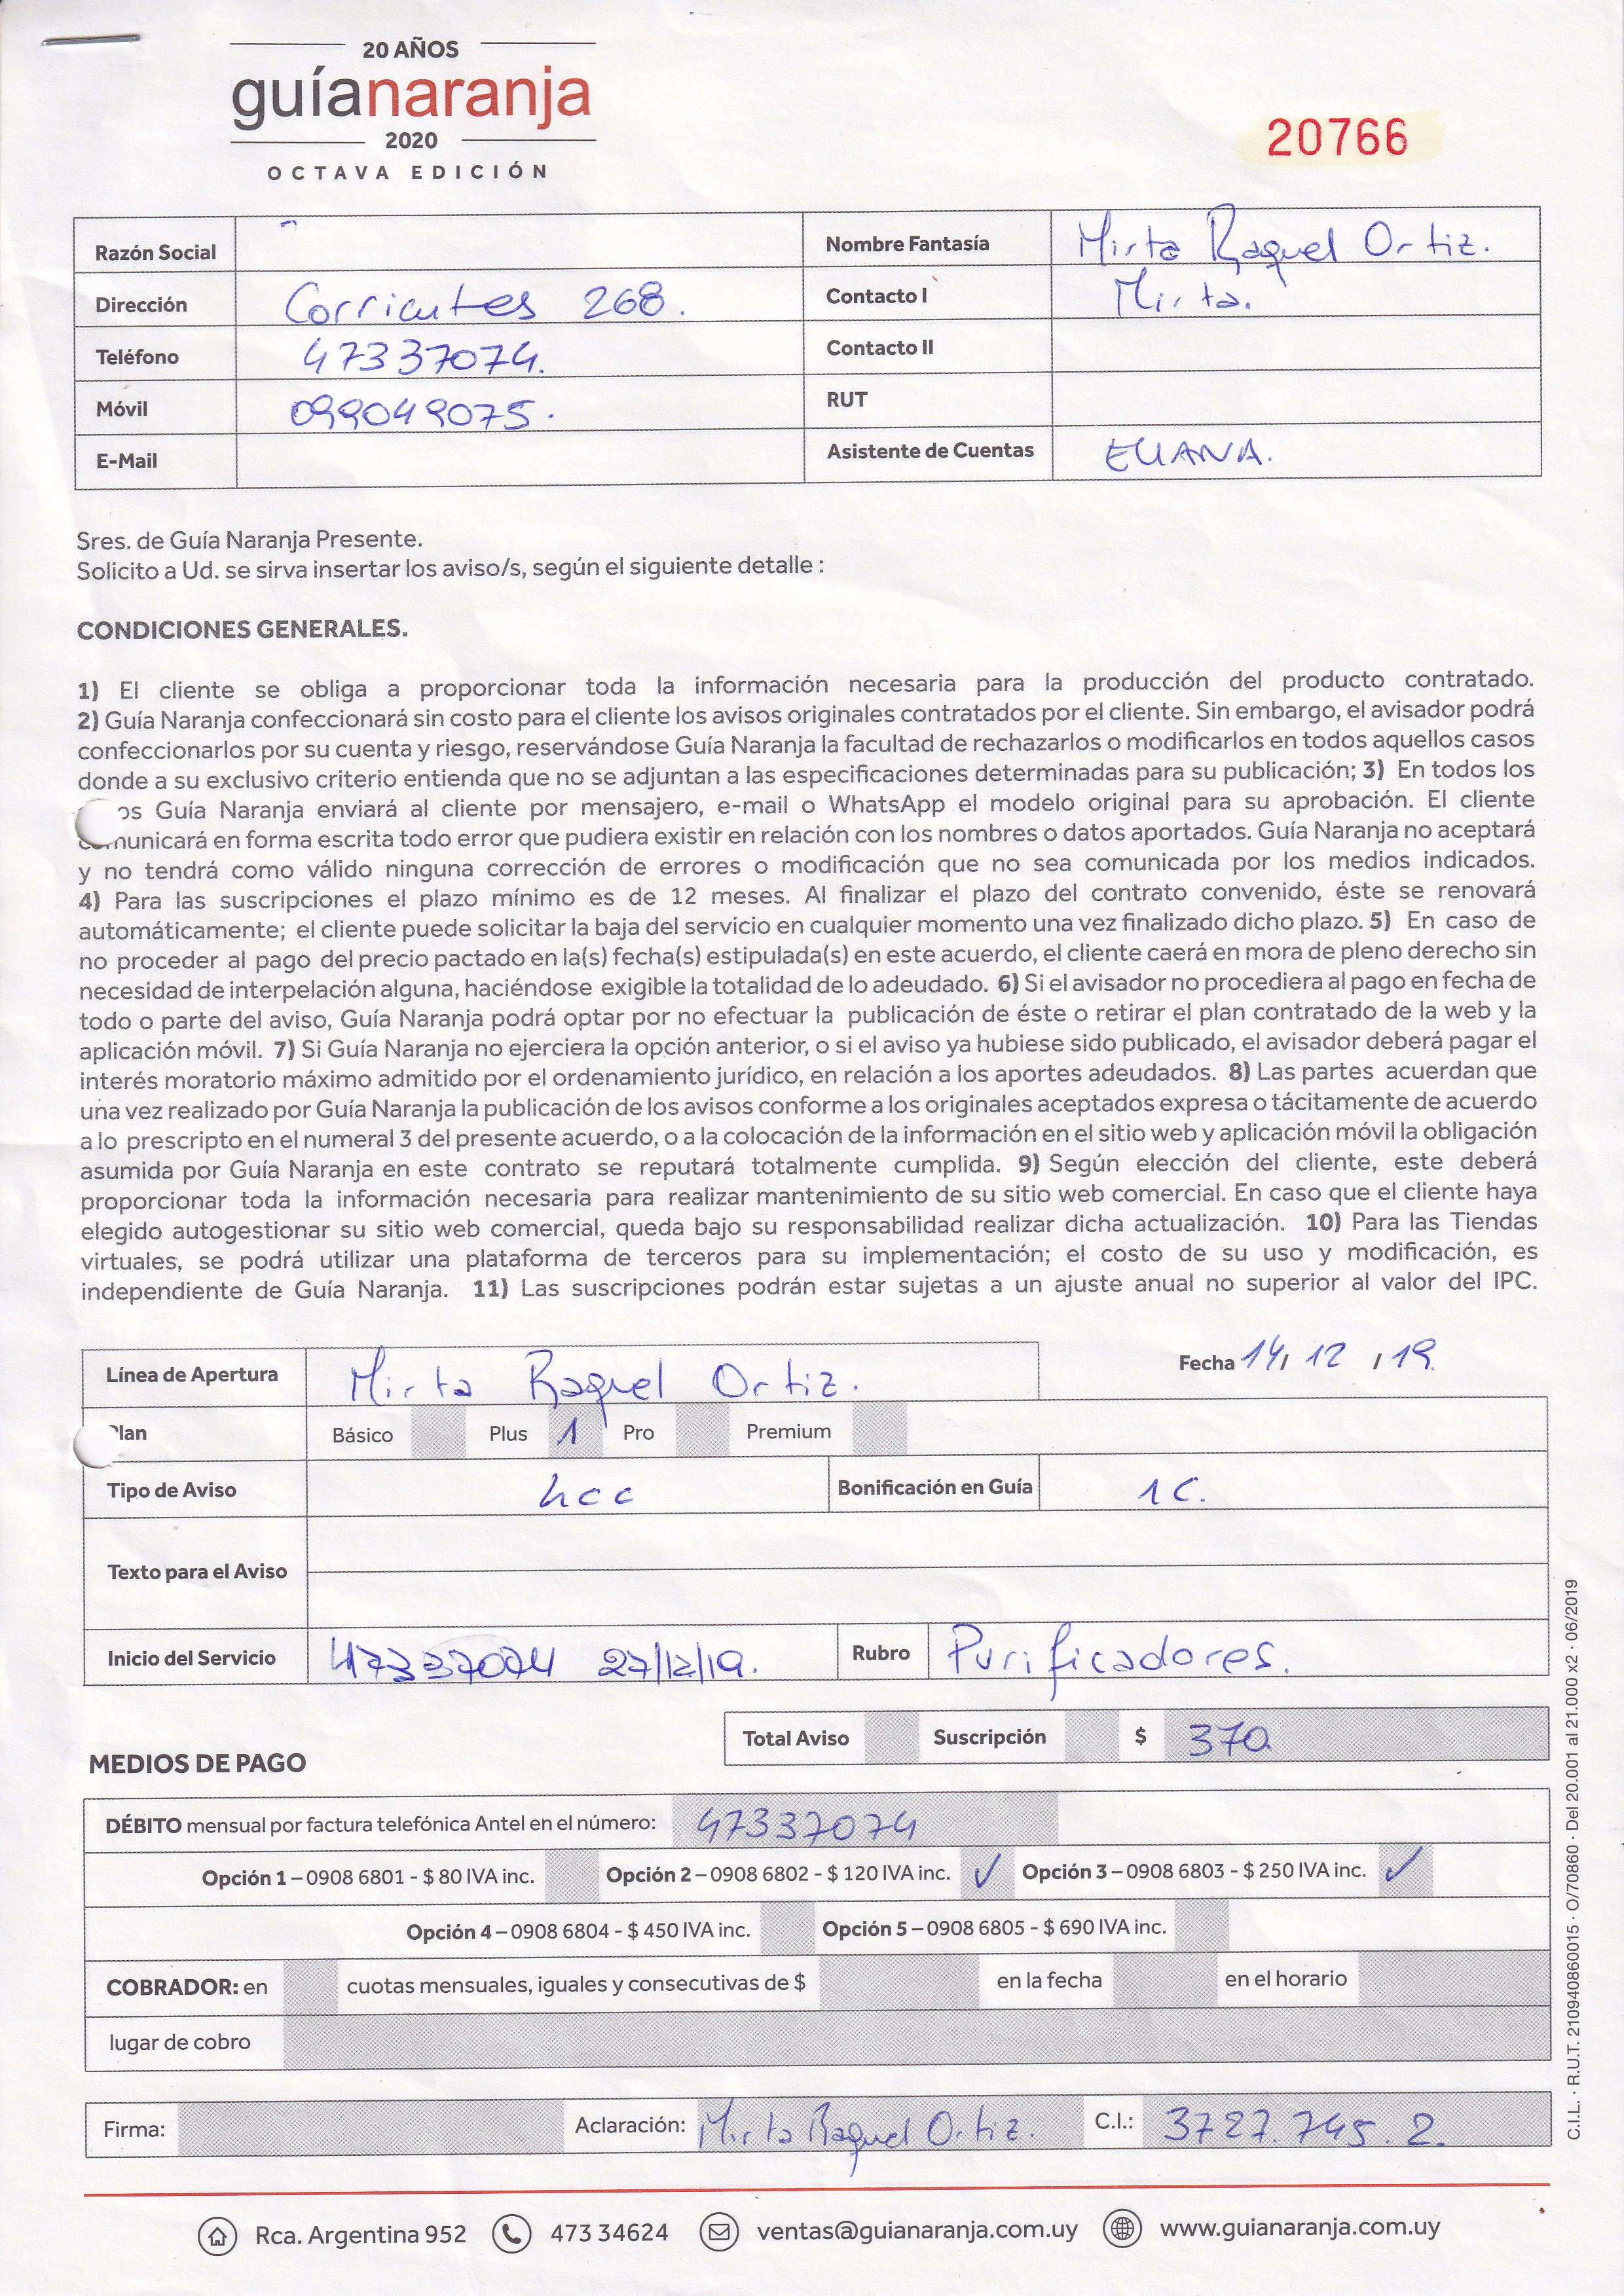 20 AÑOS
guíanaranja
2020
OCTAVA EDICIÓN
20766
Razón Social
Nombre Fantasía Mirta Raquel Ortiz.
Dirección Corrientes 268.
Contacto I Mirta.
Teléfono 47337074.
Contacto II
Móvil 099049075.
RUT
E-Mail
Asistente de Cuentas ELIANA.
Sres. de Guía Naranja Presente.
Solicito a Ud. se sirva insertar los aviso/s, según el siguiente detalle :
CONDICIONES GENERALES.
1) El cliente se obliga a proporcionar toda la información necesaria para la producción del producto contratado.
2) Guía Naranja confeccionará sin costo para el cliente los avisos originales contratados por el cliente. Sin embargo, el avisador podrá
confeccionarlos por su cuenta y riesgo, reservándose Guía Naranja la facultad de rechazarlos o modificarlos en todos aquellos casos
donde a su exclusivo criterio entienda que no se adjuntan a las especificaciones determinadas para su publicación; 3) En todos los
os Guía Naranja enviará al cliente por mensajero, e-mail o WhatsApp el modelo original para su aprobación. El cliente
comunicará en forma escrita todo error que pudiera existir en relación con los nombres o datos aportados. Guía Naranja no aceptará
y no tendrá como válido ninguna corrección de errores o modificación que no sea comunicada por los medios indicados.
4) Para las suscripciones el plazo mínimo es de 12 meses. Al finalizar el plazo del contrato convenido, éste se renovará
automáticamente; el cliente puede solicitar la baja del servicio en cualquier momento una vez finalizado dicho plazo. 5) En caso de
no proceder al pago del precio pactado en la(s) fecha(s) estipulada(s) en este acuerdo, el cliente caerá en mora de pleno derecho sin
necesidad de interpelación alguna, haciéndose exigible la totalidad de lo adeudado. 6) Si el avisador no procediera al pago en fecha de
todo o parte del aviso, Guía Naranja podrá optar por no efectuar la publicación de éste o retirar el plan contratado de la web y la
aplicación móvil. 7) Si Guía Naranja no ejerciera la opción anterior, o si el aviso ya hubiese sido publicado, el avisador deberá pagar el
interés moratorio máximo admitido por el ordenamiento jurídico, en relación a los aportes adeudados. 8) Las partes acuerdan que
una vez realizado por Guía Naranja la publicación de los avisos conforme a los originales aceptados expresa o tácitamente de acuerdo
a lo prescripto en el numeral 3 del presente acuerdo, o a la colocación de la información en el sitio web y aplicación móvil la obligación
asumida por Guía Naranja en este contrato se reputará totalmente cumplida. 9) Según elección del cliente, este deberá
proporcionar toda la información necesaria para realizar mantenimiento de su sitio web comercial. En caso que el cliente haya
elegido autogestionar su sitio web comercial, queda bajo su responsabilidad realizar dicha actualización. 10) Para las Tiendas
virtuales, se podrá utilizar una plataforma de terceros para su implementación; el costo de su uso y modificación, es
independiente de Guía Naranja. 11) Las suscripciones podrán estar sujetas a un ajuste anual no superior al valor del IPC.
Línea de Apertura Mirta Raquel Ortiz.
Fecha 14/ 12 / 19.
Plan Básico Plus 1 Pro Premium
Tipo de Aviso hcc Bonificación en Guía 1C.
Texto para el Aviso
Inicio del Servicio 47337074 27/12/19. Rubro Purificadores.
Total Aviso Suscripción $ 370.
MEDIOS DE PAGO
DÉBITO mensual por factura telefónica Antel en el número: 47337074
Opción 1 – 0908 6801 - $ 80 IVA inc. Opción 2 – 0908 6802 - $ 120 IVA inc. ✓ Opción 3 – 0908 6803 - $ 250 IVA inc. ✓
Opción 4 – 0908 6804 - $ 450 IVA inc. Opción 5 – 0908 6805 - $ 690 IVA inc.
COBRADOR: en cuotas mensuales, iguales y consecutivas de $ en la fecha en el horario
lugar de cobro
Firma: Aclaración: Mirta Raquel Ortiz. C.I.: 3727.745.2.
Rca. Argentina 952 473 34624 ventas@guianaranja.com.uy www.guianaranja.com.uy
C.I.L. · R.U.T. 210940860015 · O/70860 · Del 20.001 al 21.000 x2 · 06/2019